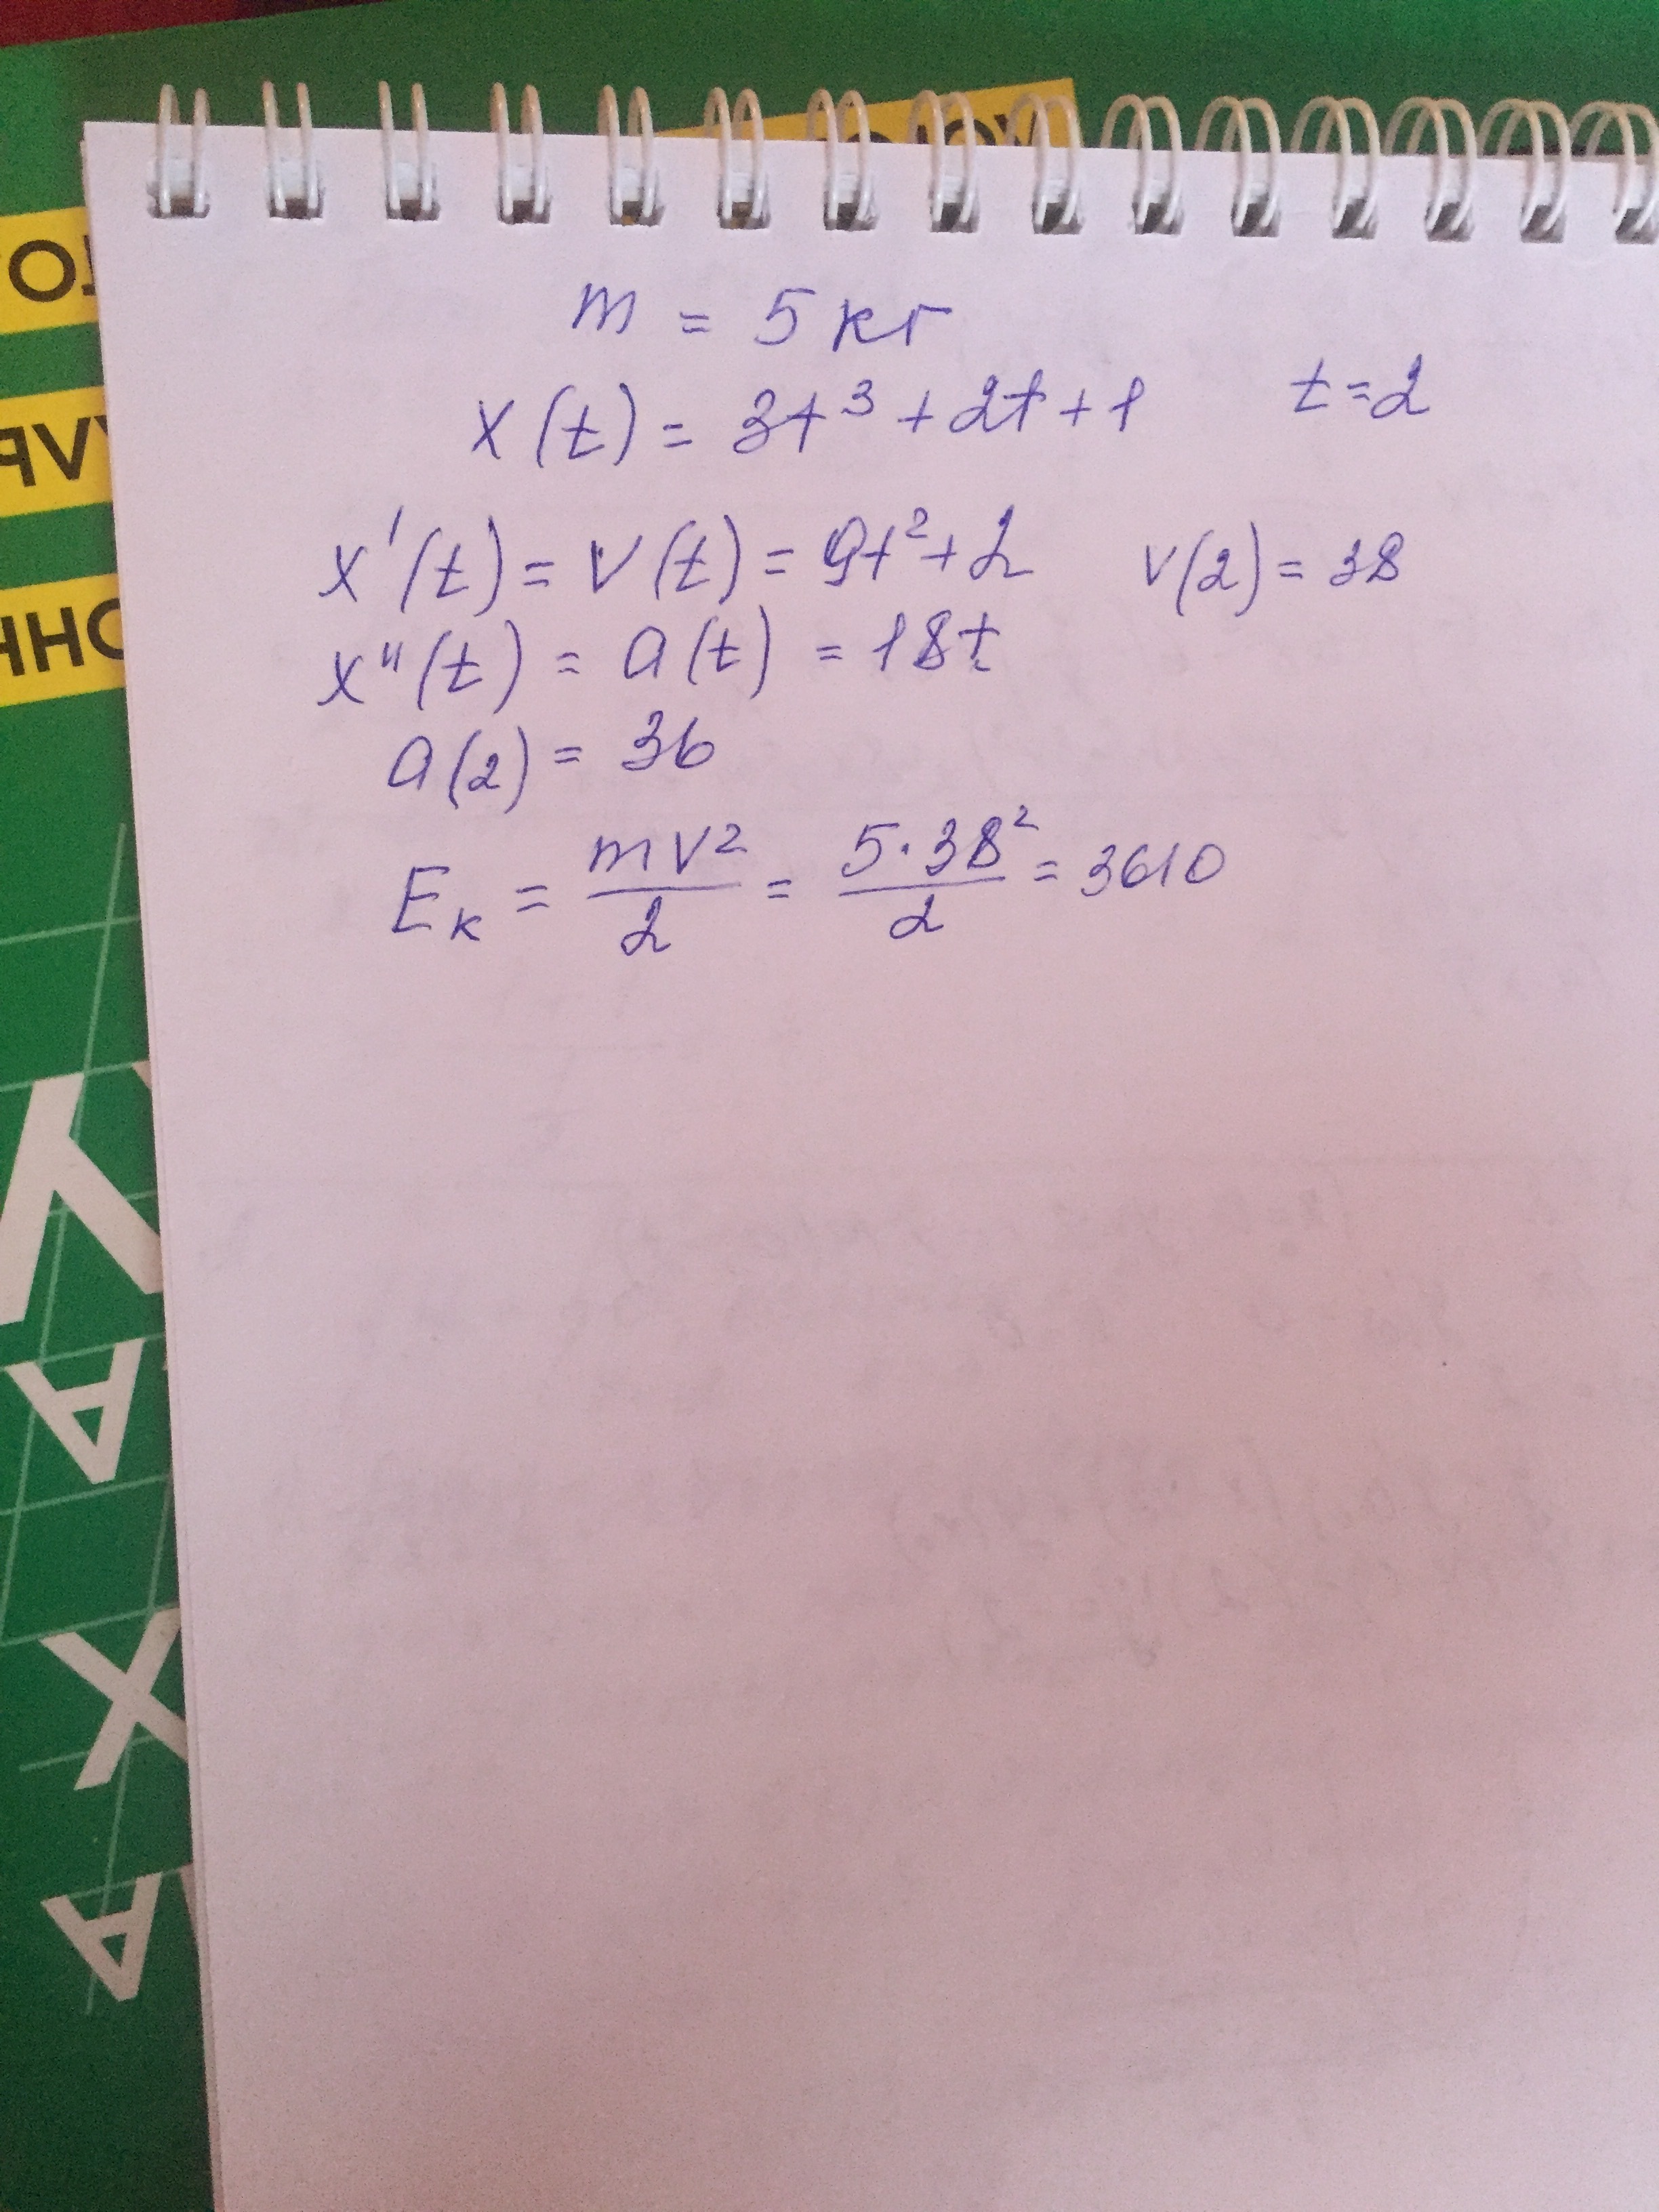 m = 5 кг
x(t) = 3t³ + 2t + 1 t=2
x'(t) = v(t) = 9t² + 2 v(2) = 38
x"(t) = a(t) = 18t
a(2) = 36
Eк = mv²/2 = 5·38²/2 = 3610